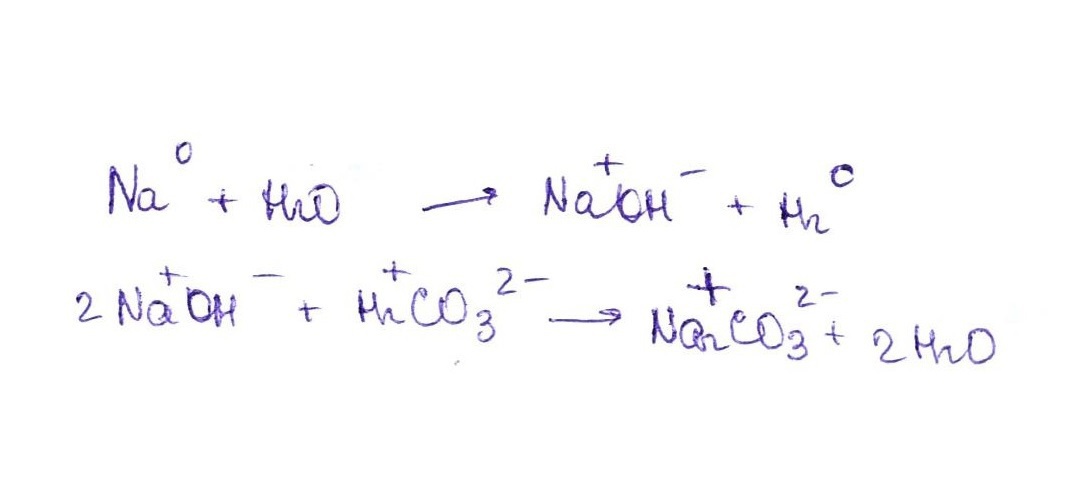 Na⁰ + H₂O → Na⁺OH⁻ + H₂⁰
2 Na⁺OH⁻ + H₂⁺CO₃²⁻ → Na₂⁺CO₃²⁻ + 2 H₂O